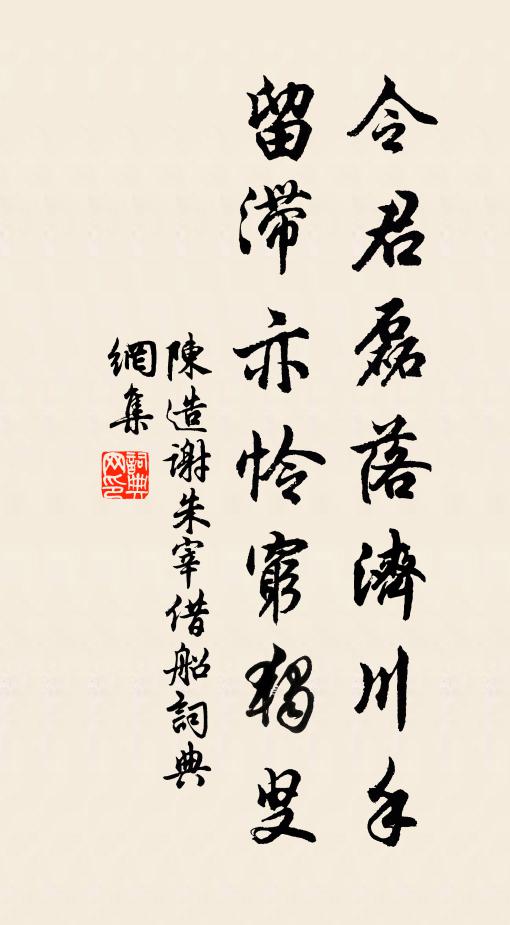 令君磊落濟川手
留滯亦怜窮獨叟
陳造謝朱宰借船詞典
網集
詞典網印